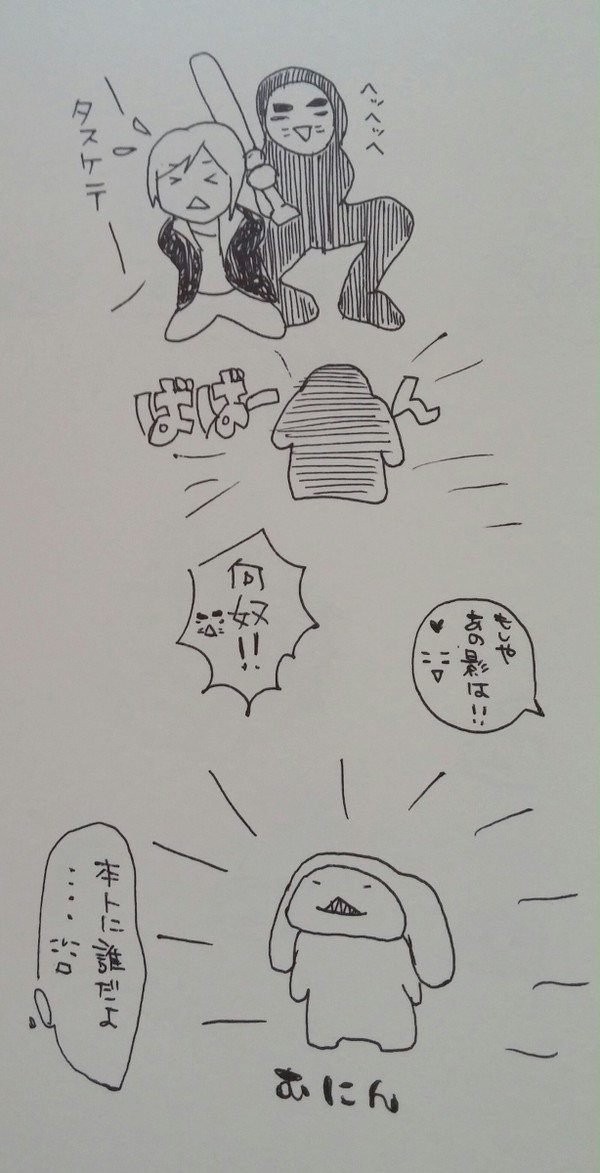 ヘッヘッヘ
タスケテー
ばばーん
何奴!!
もしや
あの影は!!
本トに誰だよ
‥‥
むにん